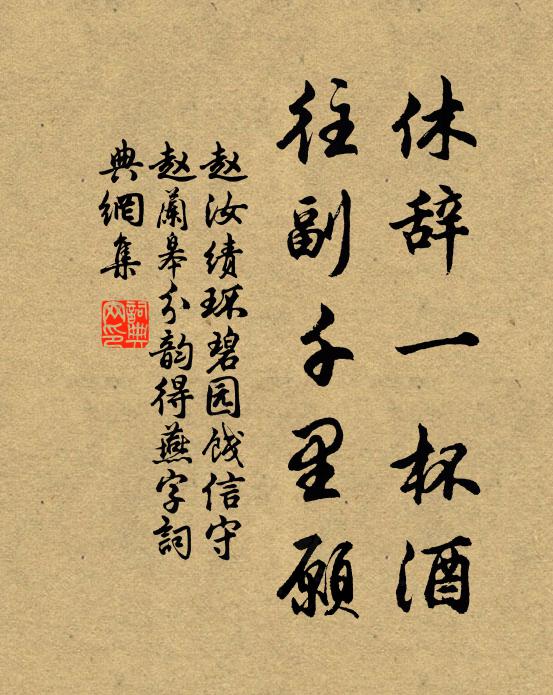 休辞一杯酒
往副千里願
赵汝绩环碧园饯信守
赵蘭皋分韵得燕字詞
典網集
詞典
网印